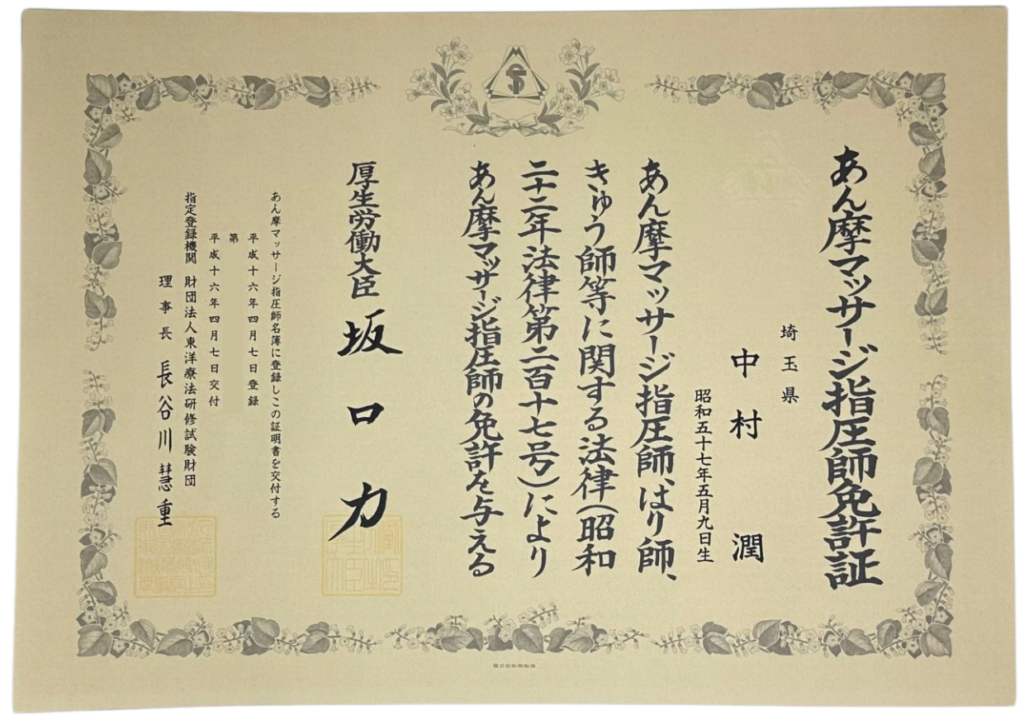 あん摩マッサージ指圧師免許証
埼玉県
中村 潤
昭和五十七年五月九日生
あん摩マッサージ指圧師、はり師、
きゅう師等に関する法律(昭和
二十二年法律第二百十七号)により
あん摩マッサージ指圧師の免許を与える
厚生労働大臣 坂口力
あん摩マッサージ指圧師名簿に登録しこの証明書を交付する
平成十六年四月七日登録
第
平成十六年四月七日交付
指定登録機関 財団法人東洋療法研修試験財団
理事長 長谷川慧重